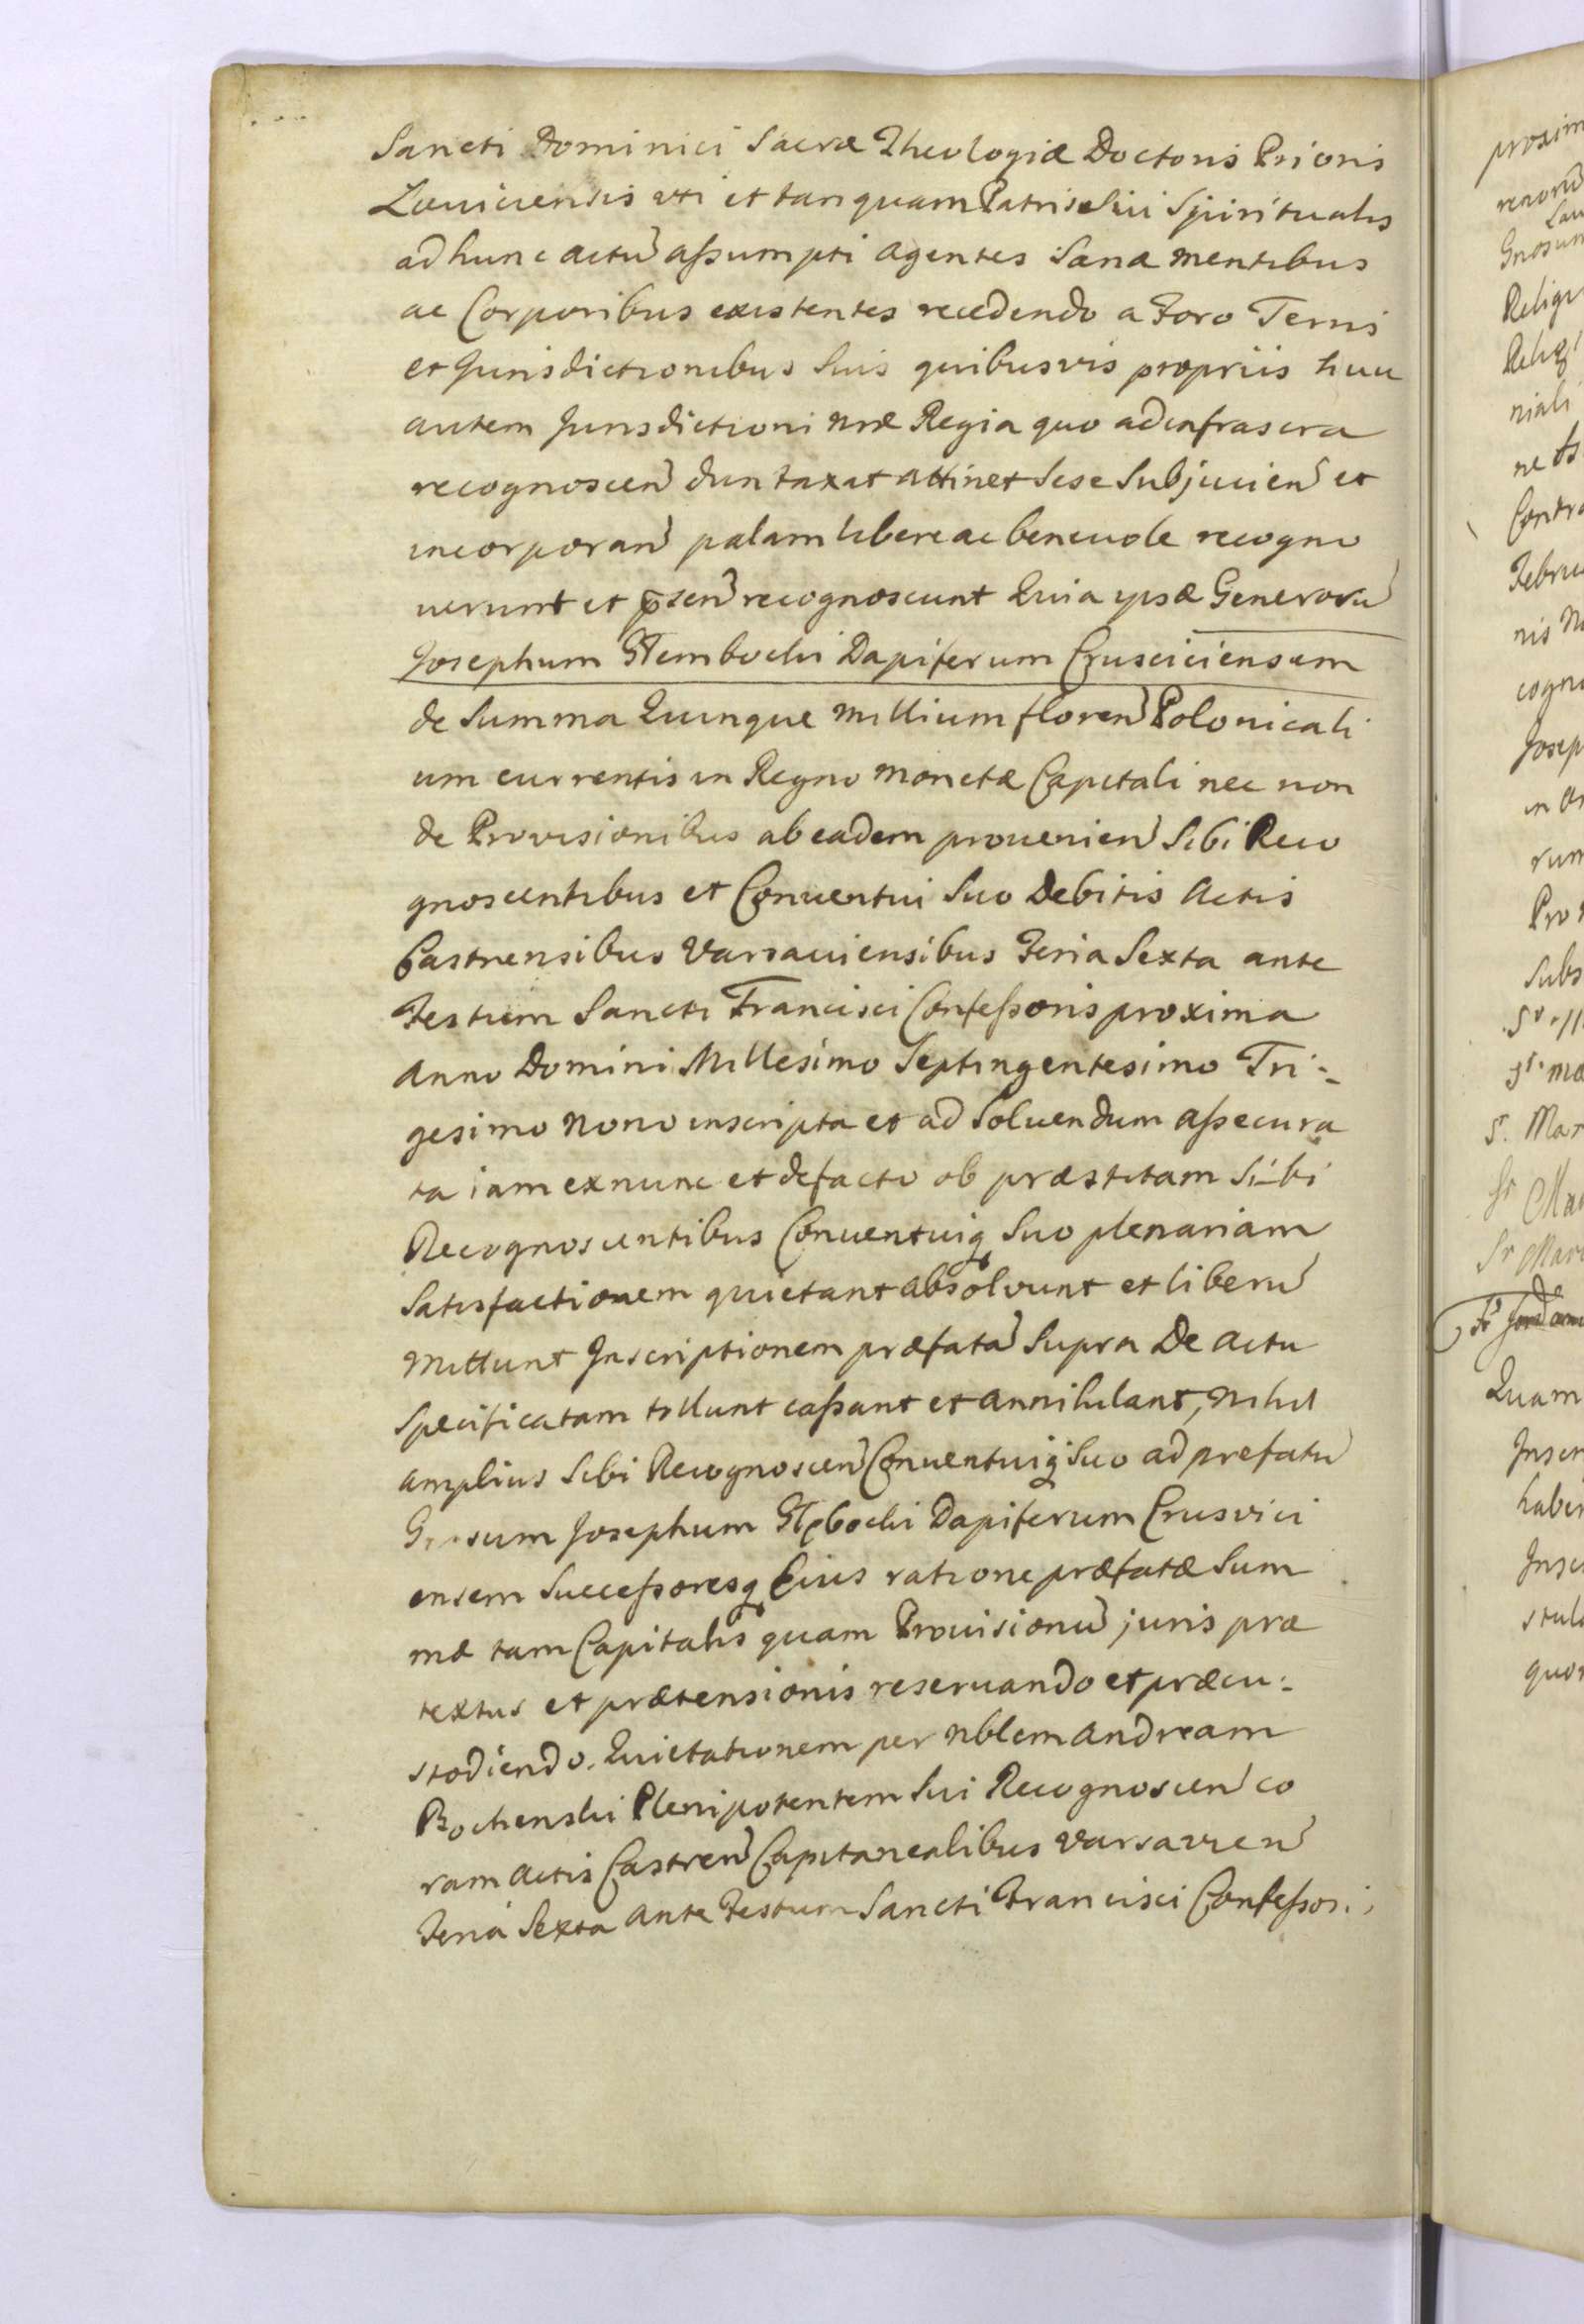 Sancti Dominici Sacræ Theologiæ Doctoris Prioris
Louiciensis uti et tanquam Patris Sui Spiritualis
ad hunc actū assumpti agentes Sanæ mentibus
ac Corporibus existentes recedendo a Foro Terris
et Jurisdictionibus Suis quibusvis propriis huic
autem Jurisdictioni nræ Regia quo ad infrascra
recognoscen̄ duntaxat attinet Sese Subjicien̄ et
incorporan̄ palam libere ac beneuole recogno
uerunt et p̄sen̄ recognoscunt Quia ipsæ Generosū
Josephum Głembocki Dapiferum Crusciciensem
de Summa Quinque Millium floren̄ Polonicali
um currentis in Regno monetæ Capitali nec non
de Provisionibus ab eadem prouenien̄ Sibi Reco
gnoscentibus et Conuentui Suo Debitis Actis
Castrensibus Varsauiensibus Feria Sexta ante
Festum Sancti Francisci Confessoris proxima
Anno Domini Millesimo Septingentesimo Tri:
gesimo Nono inscripta et ad Soluendum assecura
ta iam exnunc et defacto ob præstitam Sibi
Recognoscentibus Conuentuiq Suo plenariam
Satisfactionem quietant absolvunt et liberū
mittunt Inscriptionem præfatā Supra De actu
Specificatam tollunt cassant et annihilant, nihil
amplius Sibi Recognoscen̄ Conuentuiq Suo ad prefatū
Gnosum Josephum Głębocki Dapiferum Crusvici
ensem Successoresq Eius ratione præfatæ Sum
mæ tam Capitalis quam Prouisionū juris præ
textus et prætensionis reseruando et præcu:
stodiendo. Quietationem per Nblem Andream
Bochenski Plenipotentem Sui Recognoscen̄ co
ram Actis Castren̄ Capitanealibus Varsavien̄
Feria Sexta ante Festum Sancti Francisci Confessoris